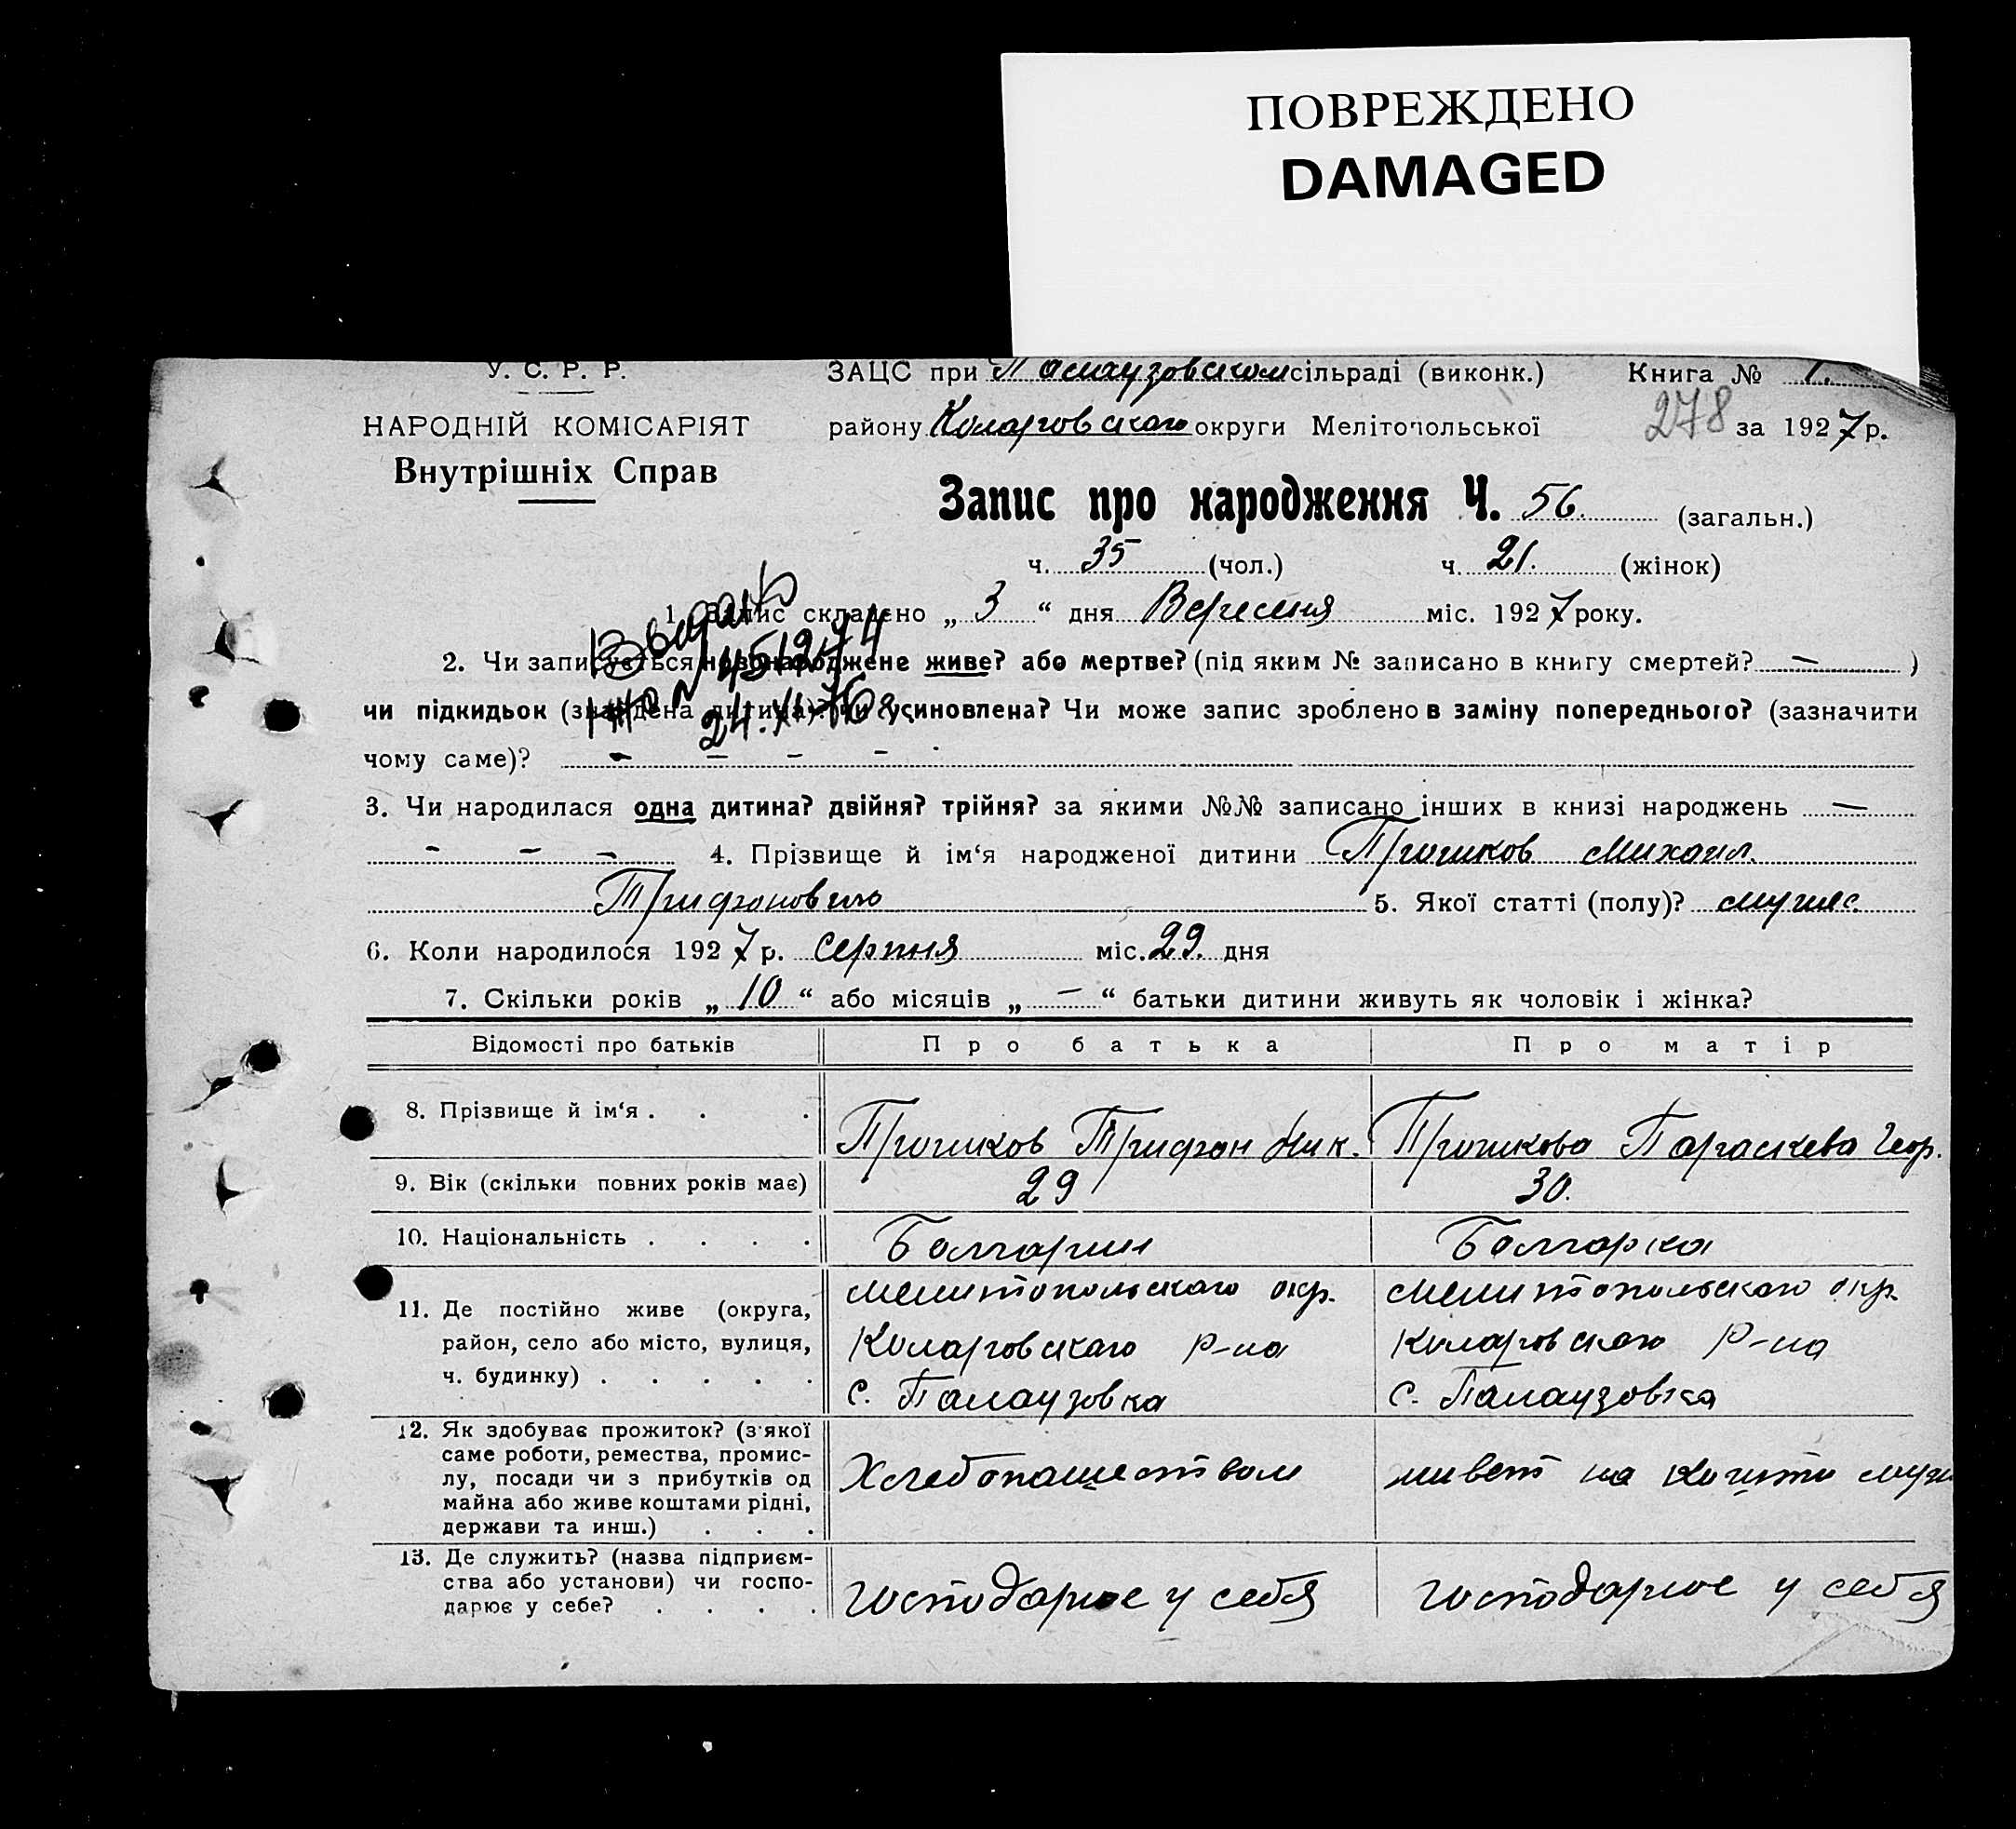 ПОВРЕЖДЕНО
DAMAGED
У. С. Р. Р.
ЗАЦС при Палаузовском сільраді (виконк.) Книга № 1.
НАРОДНІЙ КОМІСАРІЯТ
району Коларовскаго округи Мелітопольської 278 за 1927 р.
Внутрішніх Справ
Запис про народження Ч. 56. (загальн.)
ч. 35 (чол.) ч. 21. (жінок)
1. Запис складено „ 3 “ дня Вересня міс. 1927 року.
2. Чи записується новонароджене живе? або мертве? (під яким № записано в книгу смертей? — )
чи підкидьок (знайдена дитина)? чи усиновлена? Чи може запис зроблено в заміну попереднього? (зазначити
чому саме)? - - - -
24.XI-76
3. Чи народилася одна дитина? двійня? трійня? за якими №№ записано інших в книзі народжень —
- - - 4. Прізвище й ім‘я народженої дитини Михаил.
Трифонович 5. Якої статті (полу)? мужес.
6. Коли народилося 1927 р. Серпня міс. 29. дня
7. Скільки років „ 10 “ або місяців „ — “ батьки дитини живуть як чоловік і жінка?
Відомості про батьків Про батька Про матір
8. Прізвище й ім‘я . . . Трифон Ник. Параскева Геор.
9. Вік (скільки повних років має) 29 30.
10. Національність . . . . Болгарин Болгарка
11. Де постійно живе (округа, Мелитопольскаго окр. Мелитопольскаго окр.
район, село або місто, вулиця, Коларовскаго Р-на Коларовскаго Р-на
ч. будинку) . . . . . с. Палаузовка с. Палаузовка
12. Як здобуває прожиток? (з'якої
саме роботи, ремества, промис-
лу, посади чи з прибутків од Хлебопашеством живет на кошти муж
майна або живе коштами рідні,
держави та инш.) . . .
13. Де служить? (назва підприєм-
ства або установи) чи госпо- господарює у себя господарює у себя
дарює у себе? . . . .